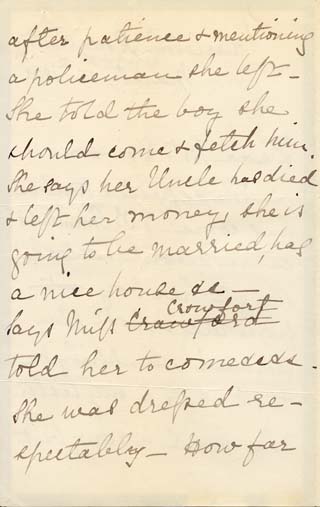 after patience & mentioning
a policeman she left –
She told the boy she
should come & fetch him.
She says her Uncle has died
& left her money, she is
going to be married, has
a nice house &c –
Crowfort
says Miss Crawford
told her to come &c &c.
She was dressed re-
spectably – How far